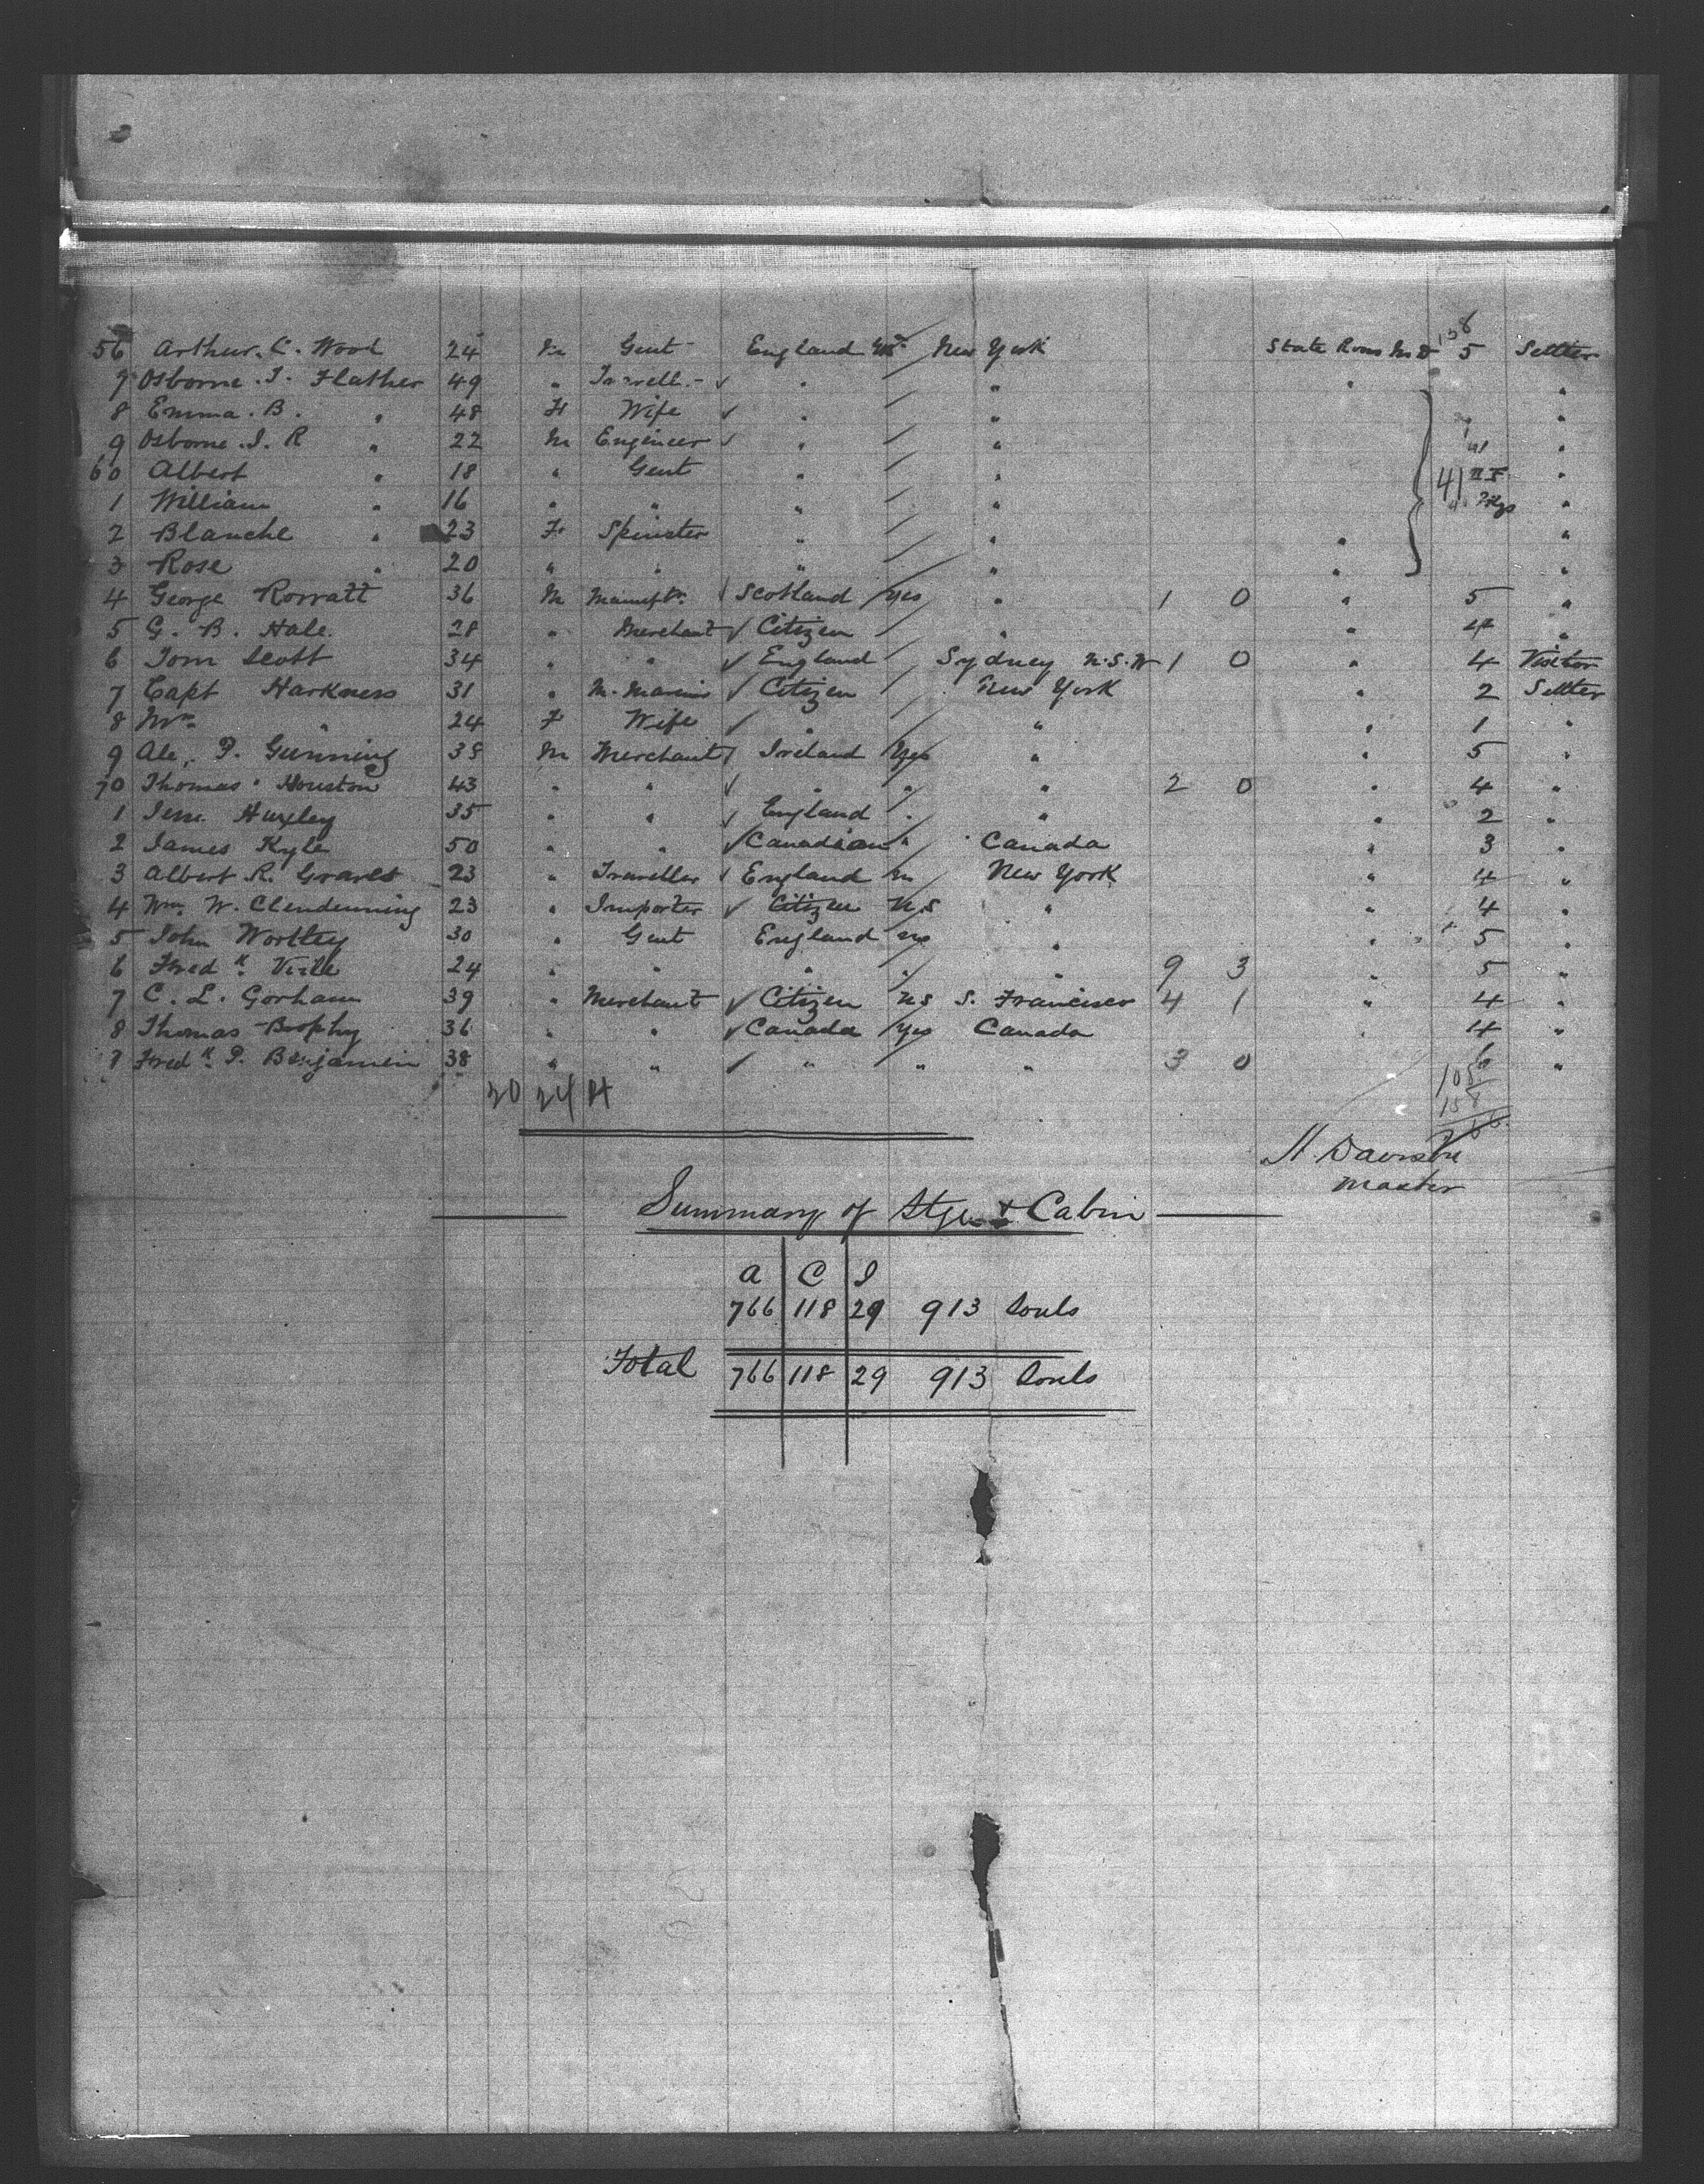 56 Arthur. C. Wood 24 m Gent England New York State Room Mid 5 Settler
7 Osborne. I. Flather 49 " Travell. ✓ " " " "
8 Emma. B. " 48 F Wife ✓ " " "
9 Osborne. I. R " 22 m Engineer ✓ " " "
60 Albert " 18 " Gent " " "
1 William " 16 " " " " "
2 Blanche " 23 F Spinster " " " "
3 Rose " 20 " " " " " "
41
4 George Rorratt 36 M Manuftr. ✓ Scotland Yes " 1 0 " 5 "
5 G. B. Hale. 28 " Merchant ✓ Citizen " " 4 "
6 Tom Scott 34 " " ✓ England Sydney N.S.W 1 0 " 4 Visitor
7 Capt Harkness 31 " M. Marine ✓ Citizen New York " 2 Settler
8 Mrs " 24 F Wife ✓ " " " 1 "
9 Ale. P. Gunning 38 M Merchant ✓ Ireland Yes " " 5 "
70 Thomas Houston 43 " " ✓ " " " 2 0 " 4 "
1 Huxley 35 " " ✓ England " " " 2 "
2 James Kyle 50 " " ✓ Canadian " Canada " 3 "
3 Albert R. Graves 23 " Traveller ✓ England New York " 4 "
4 Wm. W. Clendenning 23 " Importer ✓ Citizen N.S " " 4 "
5 John Wortley 30 " Gent England no " " 5 "
6 Fredk. 24 " " " " " 9 3 " 5 "
7 C. L. Gorham 39 " Merchant ✓ Citizen N S S. Francisco 4 1 " 4 "
8 Thomas Brophy 36 " " ✓ Canada Yes Canada 4 "
9 Fredk. P. Benjamin 38 " " ✓ " " " 3 0 6 "
20 24 4
Davison
Master
Summary of Stge & Cabin
A C I
766 118 29 913 Souls
Total 766 118 29 913 Souls